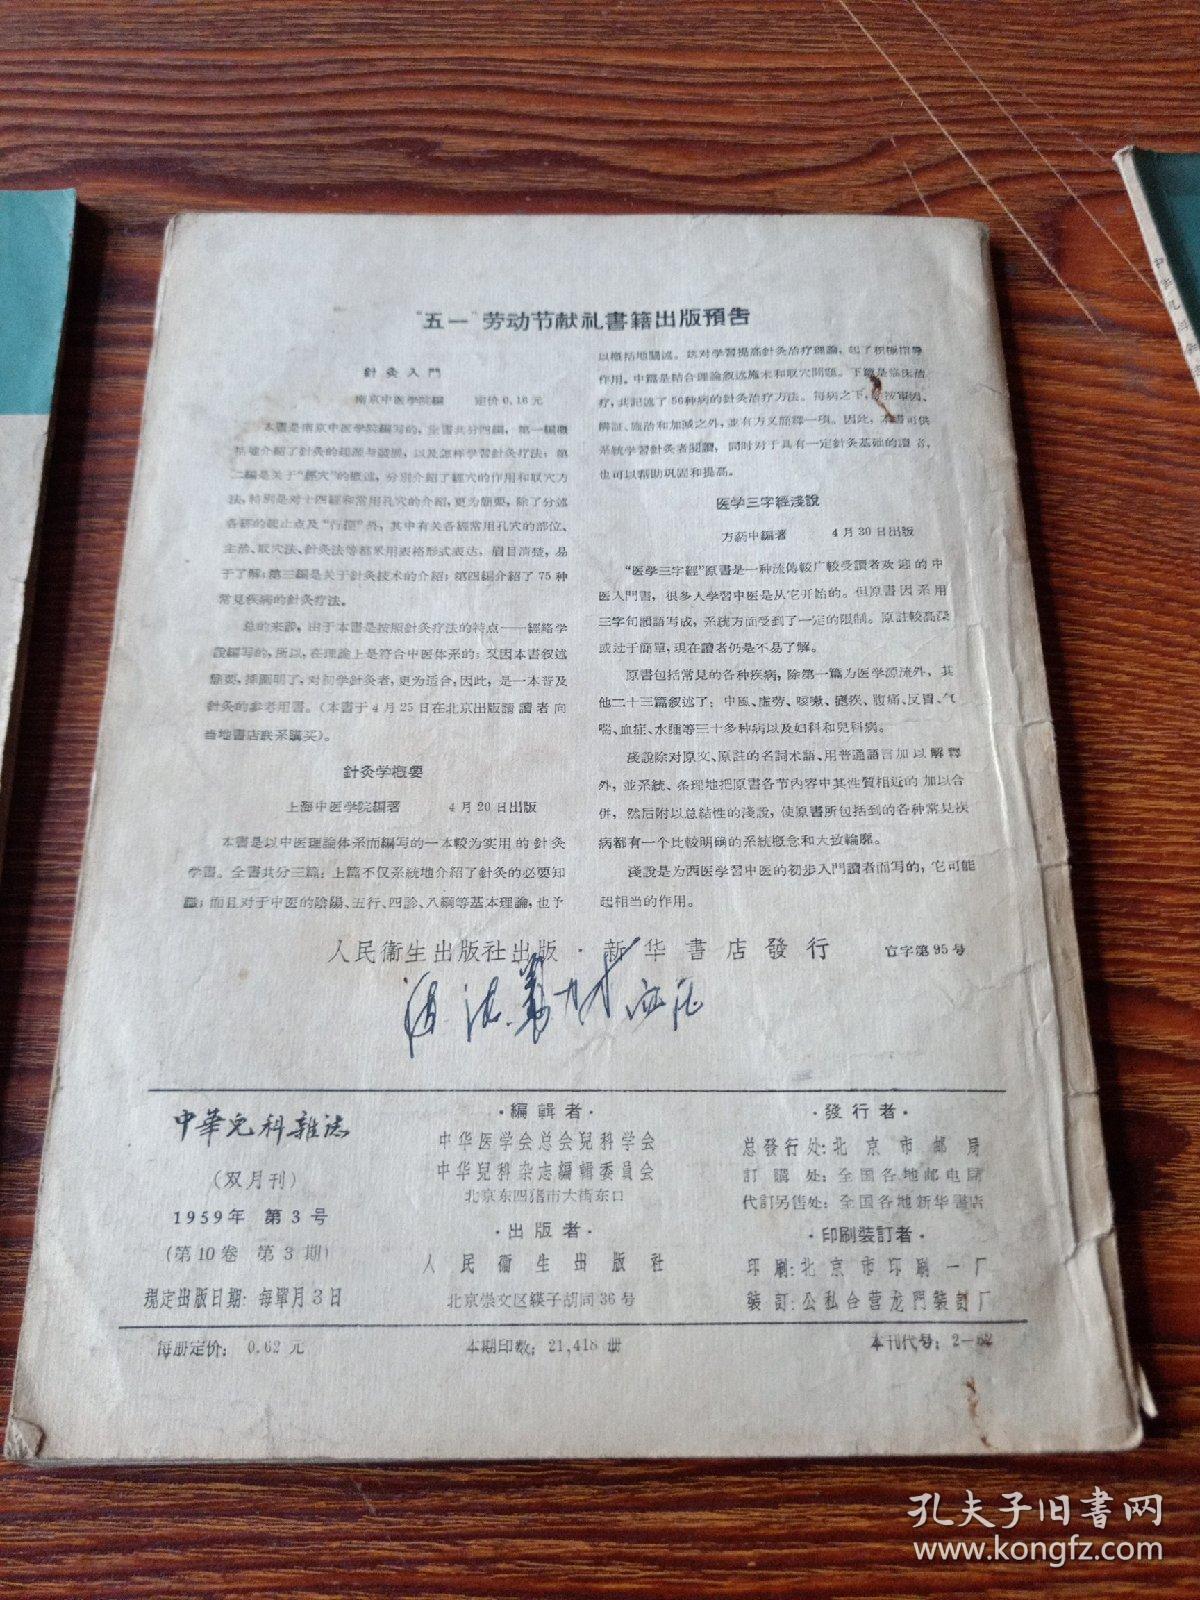 “五一”劳动节献礼書籍出版預告
針灸入門
南京中医学院編 定价0.16元
本書是南京中医学院編写的,全書共分四編,第一編概
括地介紹了針灸的起源与發展,以及怎样学習針灸疗法;第
二編是关于“經穴”的概述,分別介紹了經穴的作用和取穴方
法,特別是对十四經和常用孔穴的介紹,更为簡要,除了分述
各經的起止点及“行徑”外,其中有关各經常用孔穴的部位、
主治、取穴法、針灸法等都采用表格形式表达,眉目清楚,易
于了解;第三編是关于針灸技术的介紹;第四編介紹了75种
常見疾病的針灸疗法。
总的来說,由于本書是按照針灸疗法的特点——經絡学
說編写的,所以,在理論上是符合中医体系的;又因本書叙述
簡要,插圖明了,对初学針灸者,更为适合,因此,是一本普及
針灸的参考用書。(本書于4月25日在北京出版請讀者向
当地書店联系購买)。
針灸学概要
上海中医学院編著 4月20日出版
本書是以中医理論体系而編写的一本較为实用的針灸
学書。全書共分三篇:上篇不仅系統地介紹了針灸的必要知
識;而且对于中医的陰陽、五行、四診、八綱等基本理論,也予
以概括地闡述。这对学習提高針灸治疗理論,起了积極指导
作用。中篇是結合理論叙述施术和取穴問題。下篇是臨床治
疗,共記述了56种病的針灸治疗方法。每病之下,都按病因、
辨証、施治和加減之外,並有方义解釋一項。因此,本書可供
系統学習針灸者閱讀,同时对于具有一定針灸基础的讀者,
也可以幫助巩固和提高。
医学三字經淺說
方葯中編著 4月30日出版
“医学三字經”原書是一种流傳較广較受讀者欢迎的中
医入門書,很多人学習中医是从它开始的。但原書因采用
三字句韻語写成,系統方面受到了一定的限制。原註較高深
或过于簡單,現在讀者仍是不易了解。
原書包括常見的各种疾病,除第一篇为医学源流外,其
他二十三篇叙述了:中風、虛劳、咳嗽、瘧疾、腹痛、反胃、气
喘、血症、水腫等三十多种病以及妇科和兒科病。
淺說除对原文、原註的名詞术語、用普通語言加以解釋
外,並系統、条理地把原書各节內容中其性質相近的加以合
併,然后附以总結性的淺說,使原書所包括到的各种常見疾
病都有一个比較明确的系統概念和大致輪廓。
淺說是为西医学習中医的初步入門讀者而写的,它可能
起相当的作用。
人民衞生出版社出版·新华書店發行 官字第95号
中華兒科雜誌
(双月刊)
1959年 第3号
(第10卷 第3期)
規定出版日期:每單月3日
·編輯者·
中华医学会总会兒科学会
中华兒科杂志編輯委員会
北京东四猪市大街东口
·出版者·
人民衞生出版社
北京崇文区䋺子胡同36号
·發行者·
总發行处:北京市邮局
訂購处:全国各地邮电局
代訂另售处:全国各地新华書店
·印刷装訂者·
印刷:北京市印刷一厂
装訂:公私合营龙門装訂厂
每册定价:0.62元
本期印数:21,418册
本刊代号:2—62
孔夫子旧書网
www.kongfz.com